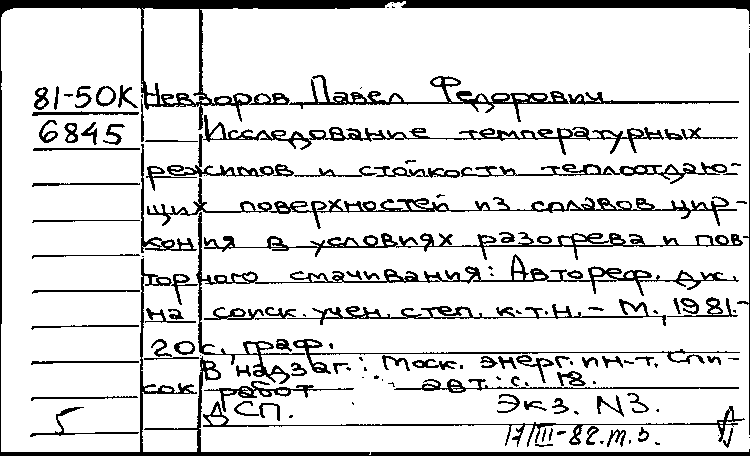 81-50К Невзоров, Павел Федорович
6845 Исследование температурных
режимов и стойкости теплоотдаю-
щих поверхностей из сплавов цир-
кония в условиях разогрева и пов-
торного смачивания: Автореф. дис.
на соиск. учен. степ. к.т.н. - М., 1981.-
20с., граф.
В надзаг.: Моск. энерг. ин-т. Спи-
сок работ авт.: с. 18.
5 ДСП. Экз. N3.
17/III-82.т.з.